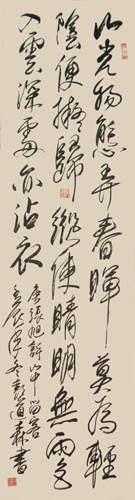 山光物態弄春暉莫為輕
陰便擬歸縱使晴明無雨色
入雲深處亦沾衣
唐張旭詩山中留客
壬辰年冬彭道森書